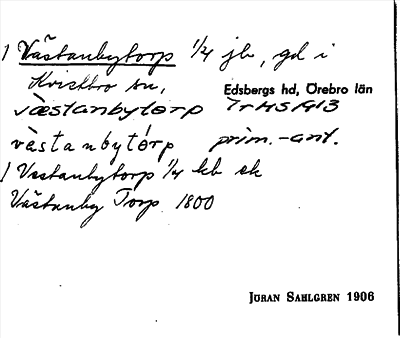 1 Västanbytorp 1/4 jb, gd i
Kvistbro sn, Edsbergs hd, Örebro län
væstanbytorp TrHS 1913
vàstanbytórp prim.-ant.
1 Vestanbytorp 1/4 kb sk
Västanby Torp 1800
JÖRAN SAHLGREN 1906